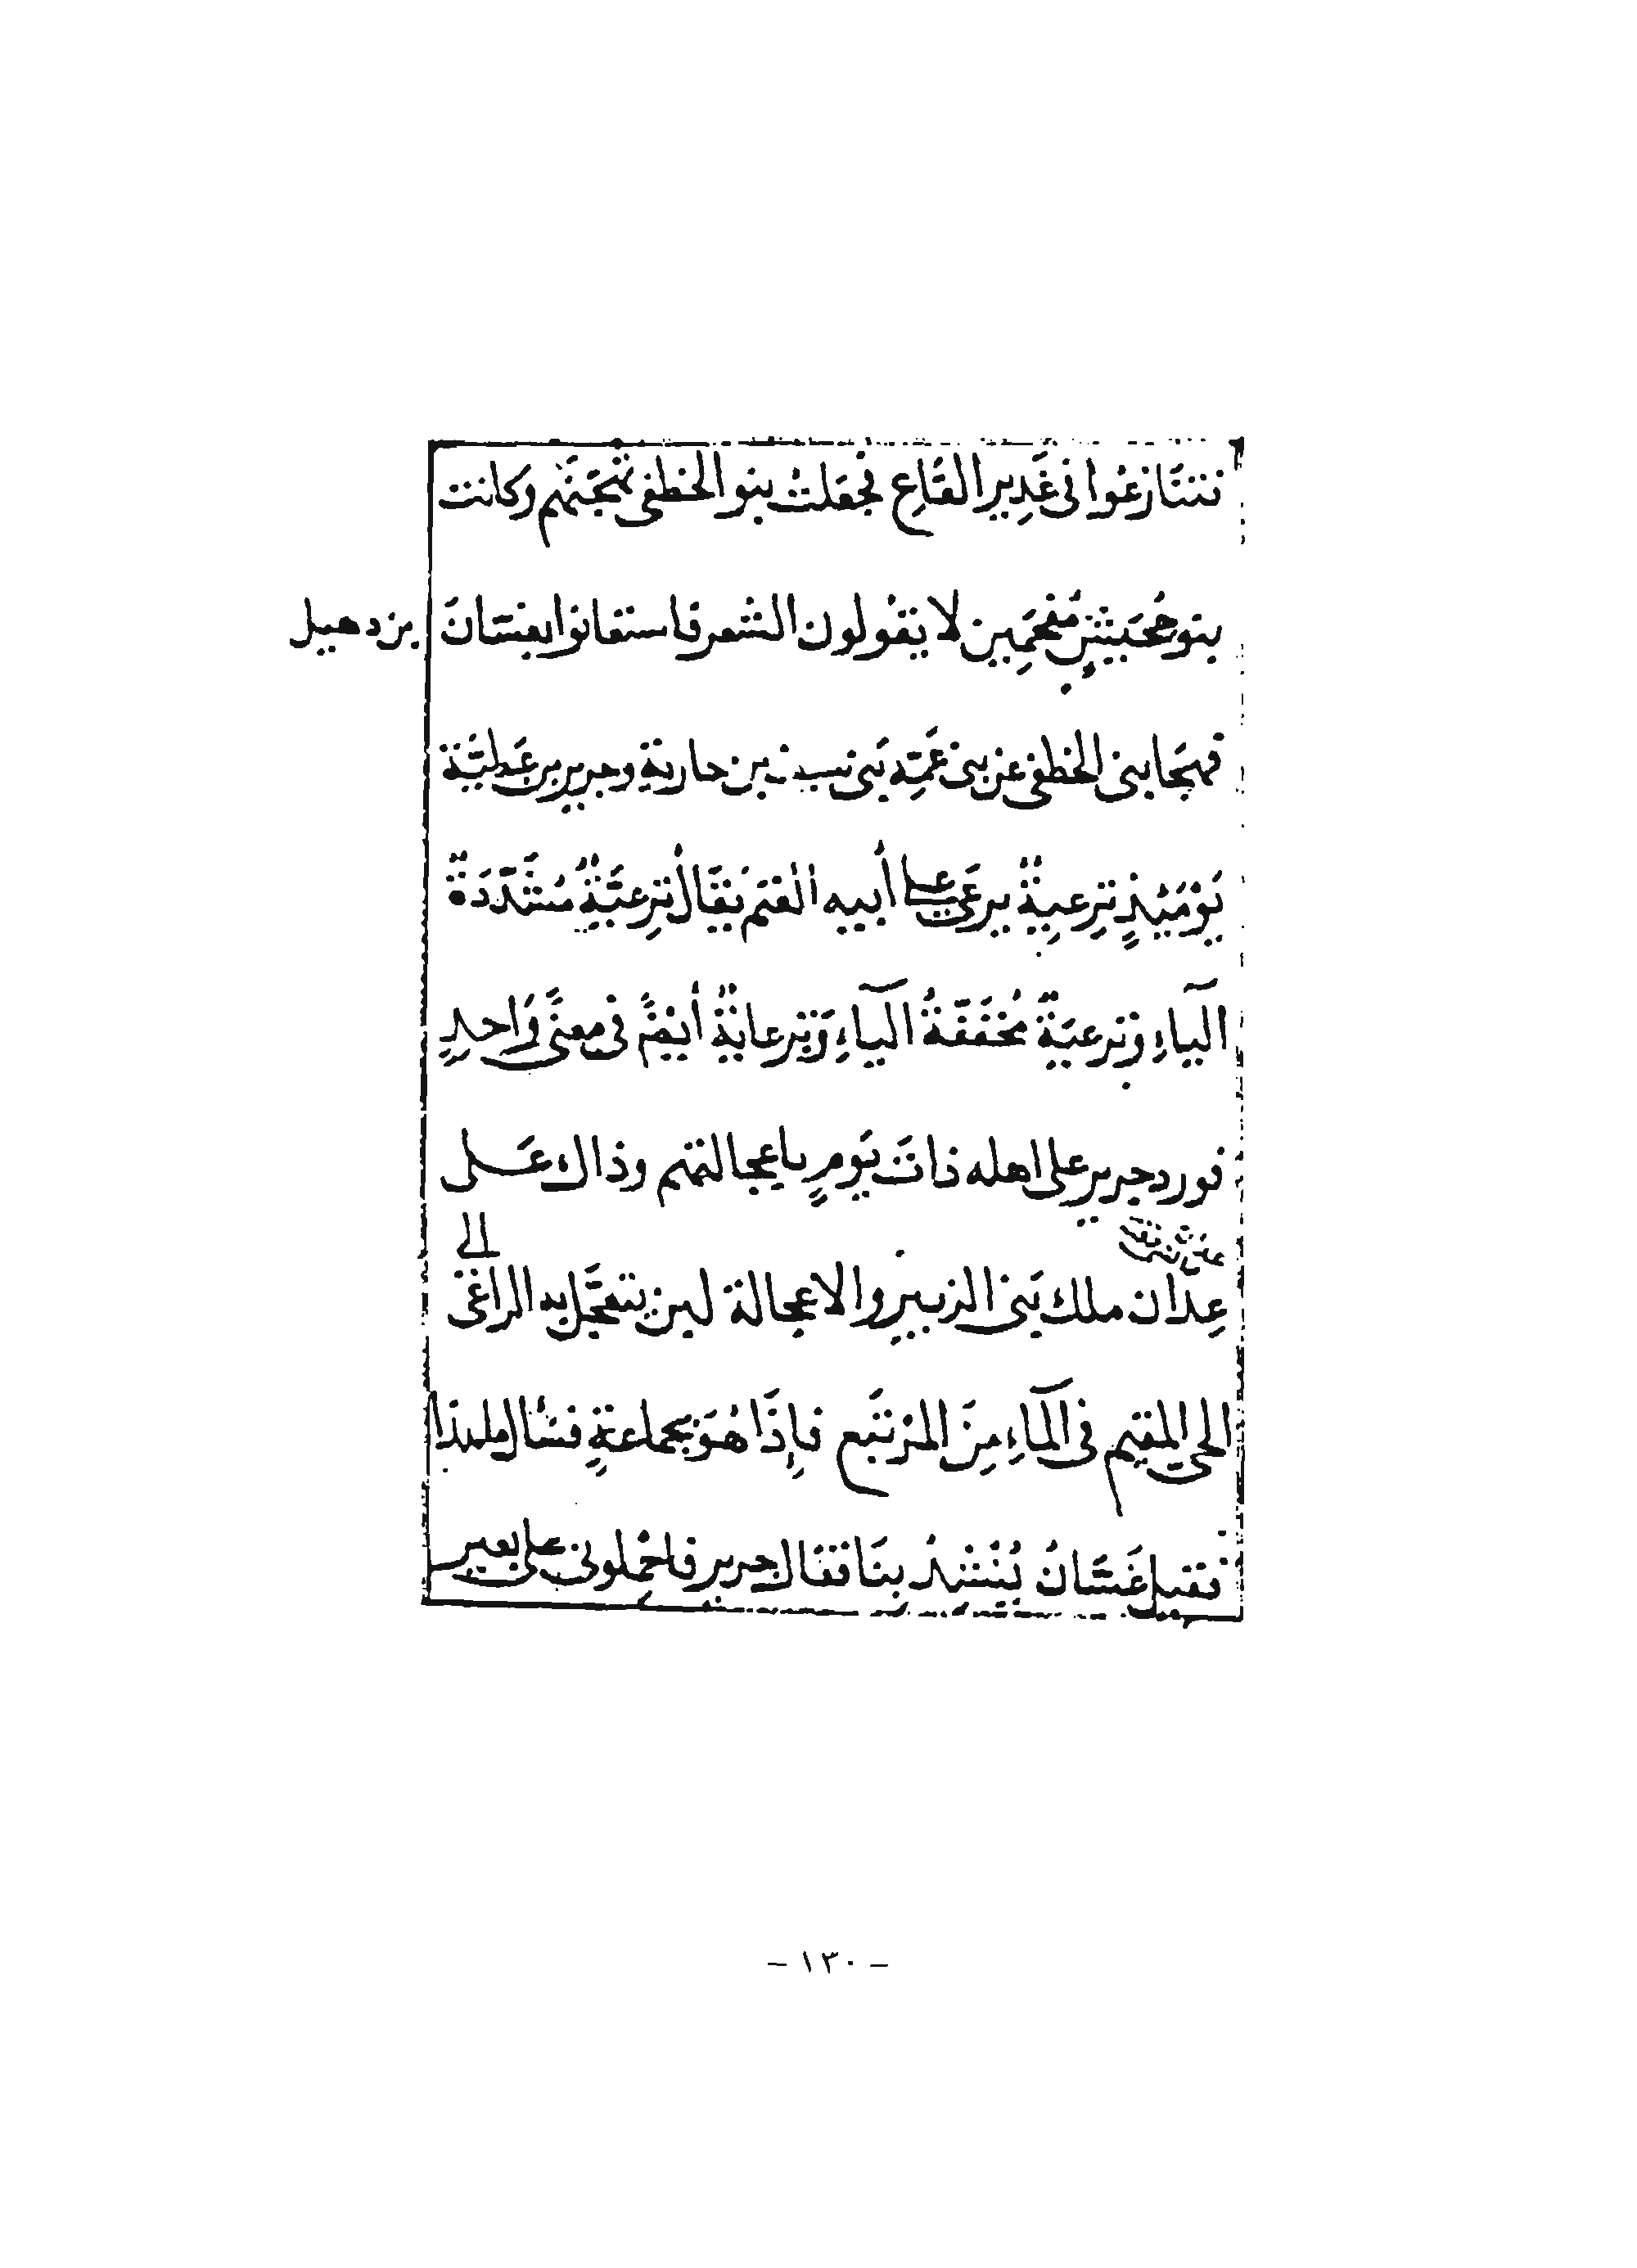 تَتنَازَعُوا فى غَدِيرِ القَاعِ فجعَلتْ بنو الخَطَفى تهجُّيهُم وكانت
بنو جُحَيشٍ مُفحَمِين لا يقولون الشعر فاستعانوا بغَسَّانَ بن ذهيل
فهجَا بنى الخطفى عن بنى عَمّه بَنى سيد بن حارثة وجرير بن عَطيَّة
يَوْمَئِذٍ تِرعِيةٌ يرعَى على أبيه الغنم يُقَال تِرعيَّةٌ مشَدَّدَة
اليَاءِ وتِرعيَةٌ مُخفَفَةُ اليَاءِ وَتِرعايةٌ أيضًا فى معنًى وَاحدٍ
فورد جرير على اهله ذات يَومٍ باعجالتهم وذاك عَلى
عِدّان ملك بَنى الزبير والاعجالة لبن يتعَجَّل به الراعى الى
الحى المقيم فى المَاءِ مِنَ المرْتَبع فإذَا هُوَ بجماعةٍ فسَأل ما هذا
فقيل غَسَّانُ يُنْشِدُ بنَا فقال جرير فاحْملونى على بعير
- ١٣٠ -